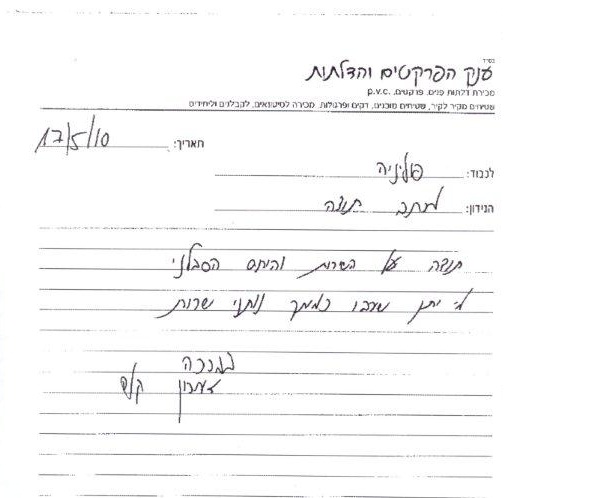 בס"ד
ענק הפרקטים והדלתות
מכירת דלתות פנים, פרקטים, p.v.c.
שטיחים מקיר לקיר, שטיחים מוכנים, דקים ופרגולות, מכירה לסיטונאים, לקבלנים וליחידים
תאריך: 17/5/10
לכבוד: פוליגיה
הנידון: מכתב תודה
תודה על השרות והיחס הסבלני
מי יתן שירבו כמוך נותני שרות
בברכה